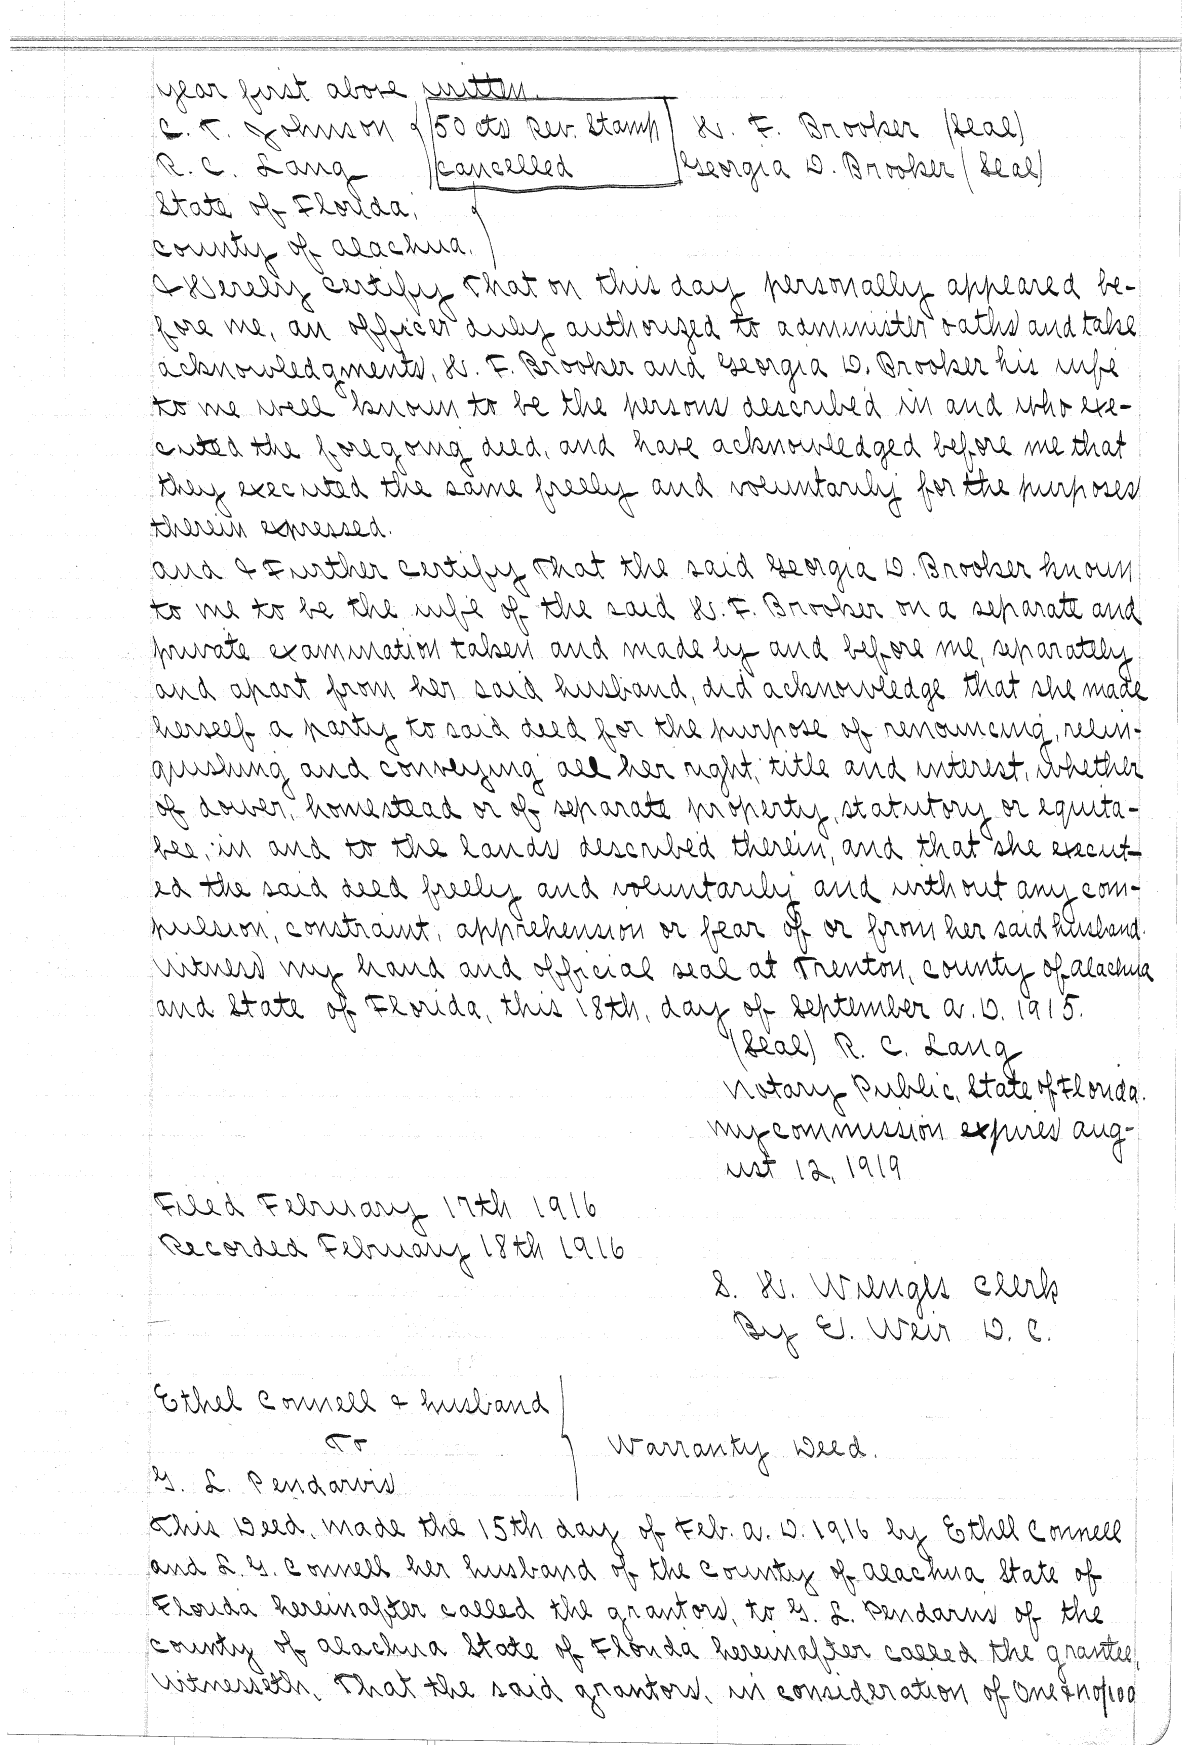 year first above written.
C. T. Johnson 50 cts Rev. Stamp H. F. Brooker (Seal)
R. C. Lang cancelled Georgia D. Brooker (Seal)
State of Florida,
County of Alachua.
I Hereby Certify That on this day personally appeared be-
fore me, an officer duly authorized to administer oaths and take
acknowledgments, H. F. Brooker and Georgia D. Brooker his wife
to me well known to be the persons described in and who exe-
cuted the foregoing deed, and have acknowledged before me that
they executed the same freely and voluntarily for the purposes
therein expressed.
And I Further Certify That the said Georgia D. Brooker known
to me to be the wife of the said H. F. Brooker on a separate and
private examination taken and made by and before me, separately
and apart from her said husband, did acknowledge that she made
herself a party to said deed for the purpose of renouncing, relin-
quishing and conveying all her right, title and interest, whether
of dower, homestead or of separate property, statutory or equita-
ble, in and to the lands described therein, and that she execut-
ed the said deed freely and voluntarily and without any com-
pulsion, constraint, apprehension or fear of or from her said husband.
Witness my hand and official seal at Trenton, County of Alachua
and State of Florida, this 18th, day of September A. D. 1915.
(Seal) R. C. Lang
Notary Public, State of Florida.
My commission expires Aug-
ust 12, 1919
Filed February 17th 1916
Recorded February 18th 1916
S. H. Wienges Clerk
By E. Weir D. C.
Ethel Connell & husband
To Warranty Deed.
G. L. Pendarvis
This Deed, made the 15th day of Feb. A. D. 1916 by Ethel Connell
and L. G. Connell her husband of the County of Alachua State of
Florida hereinafter called the grantors, to G. L. Pendarvis of the
County of Alachua State of Florida hereinafter called the grantee,
Witnesseth, That the said grantors, in consideration of One & no/100